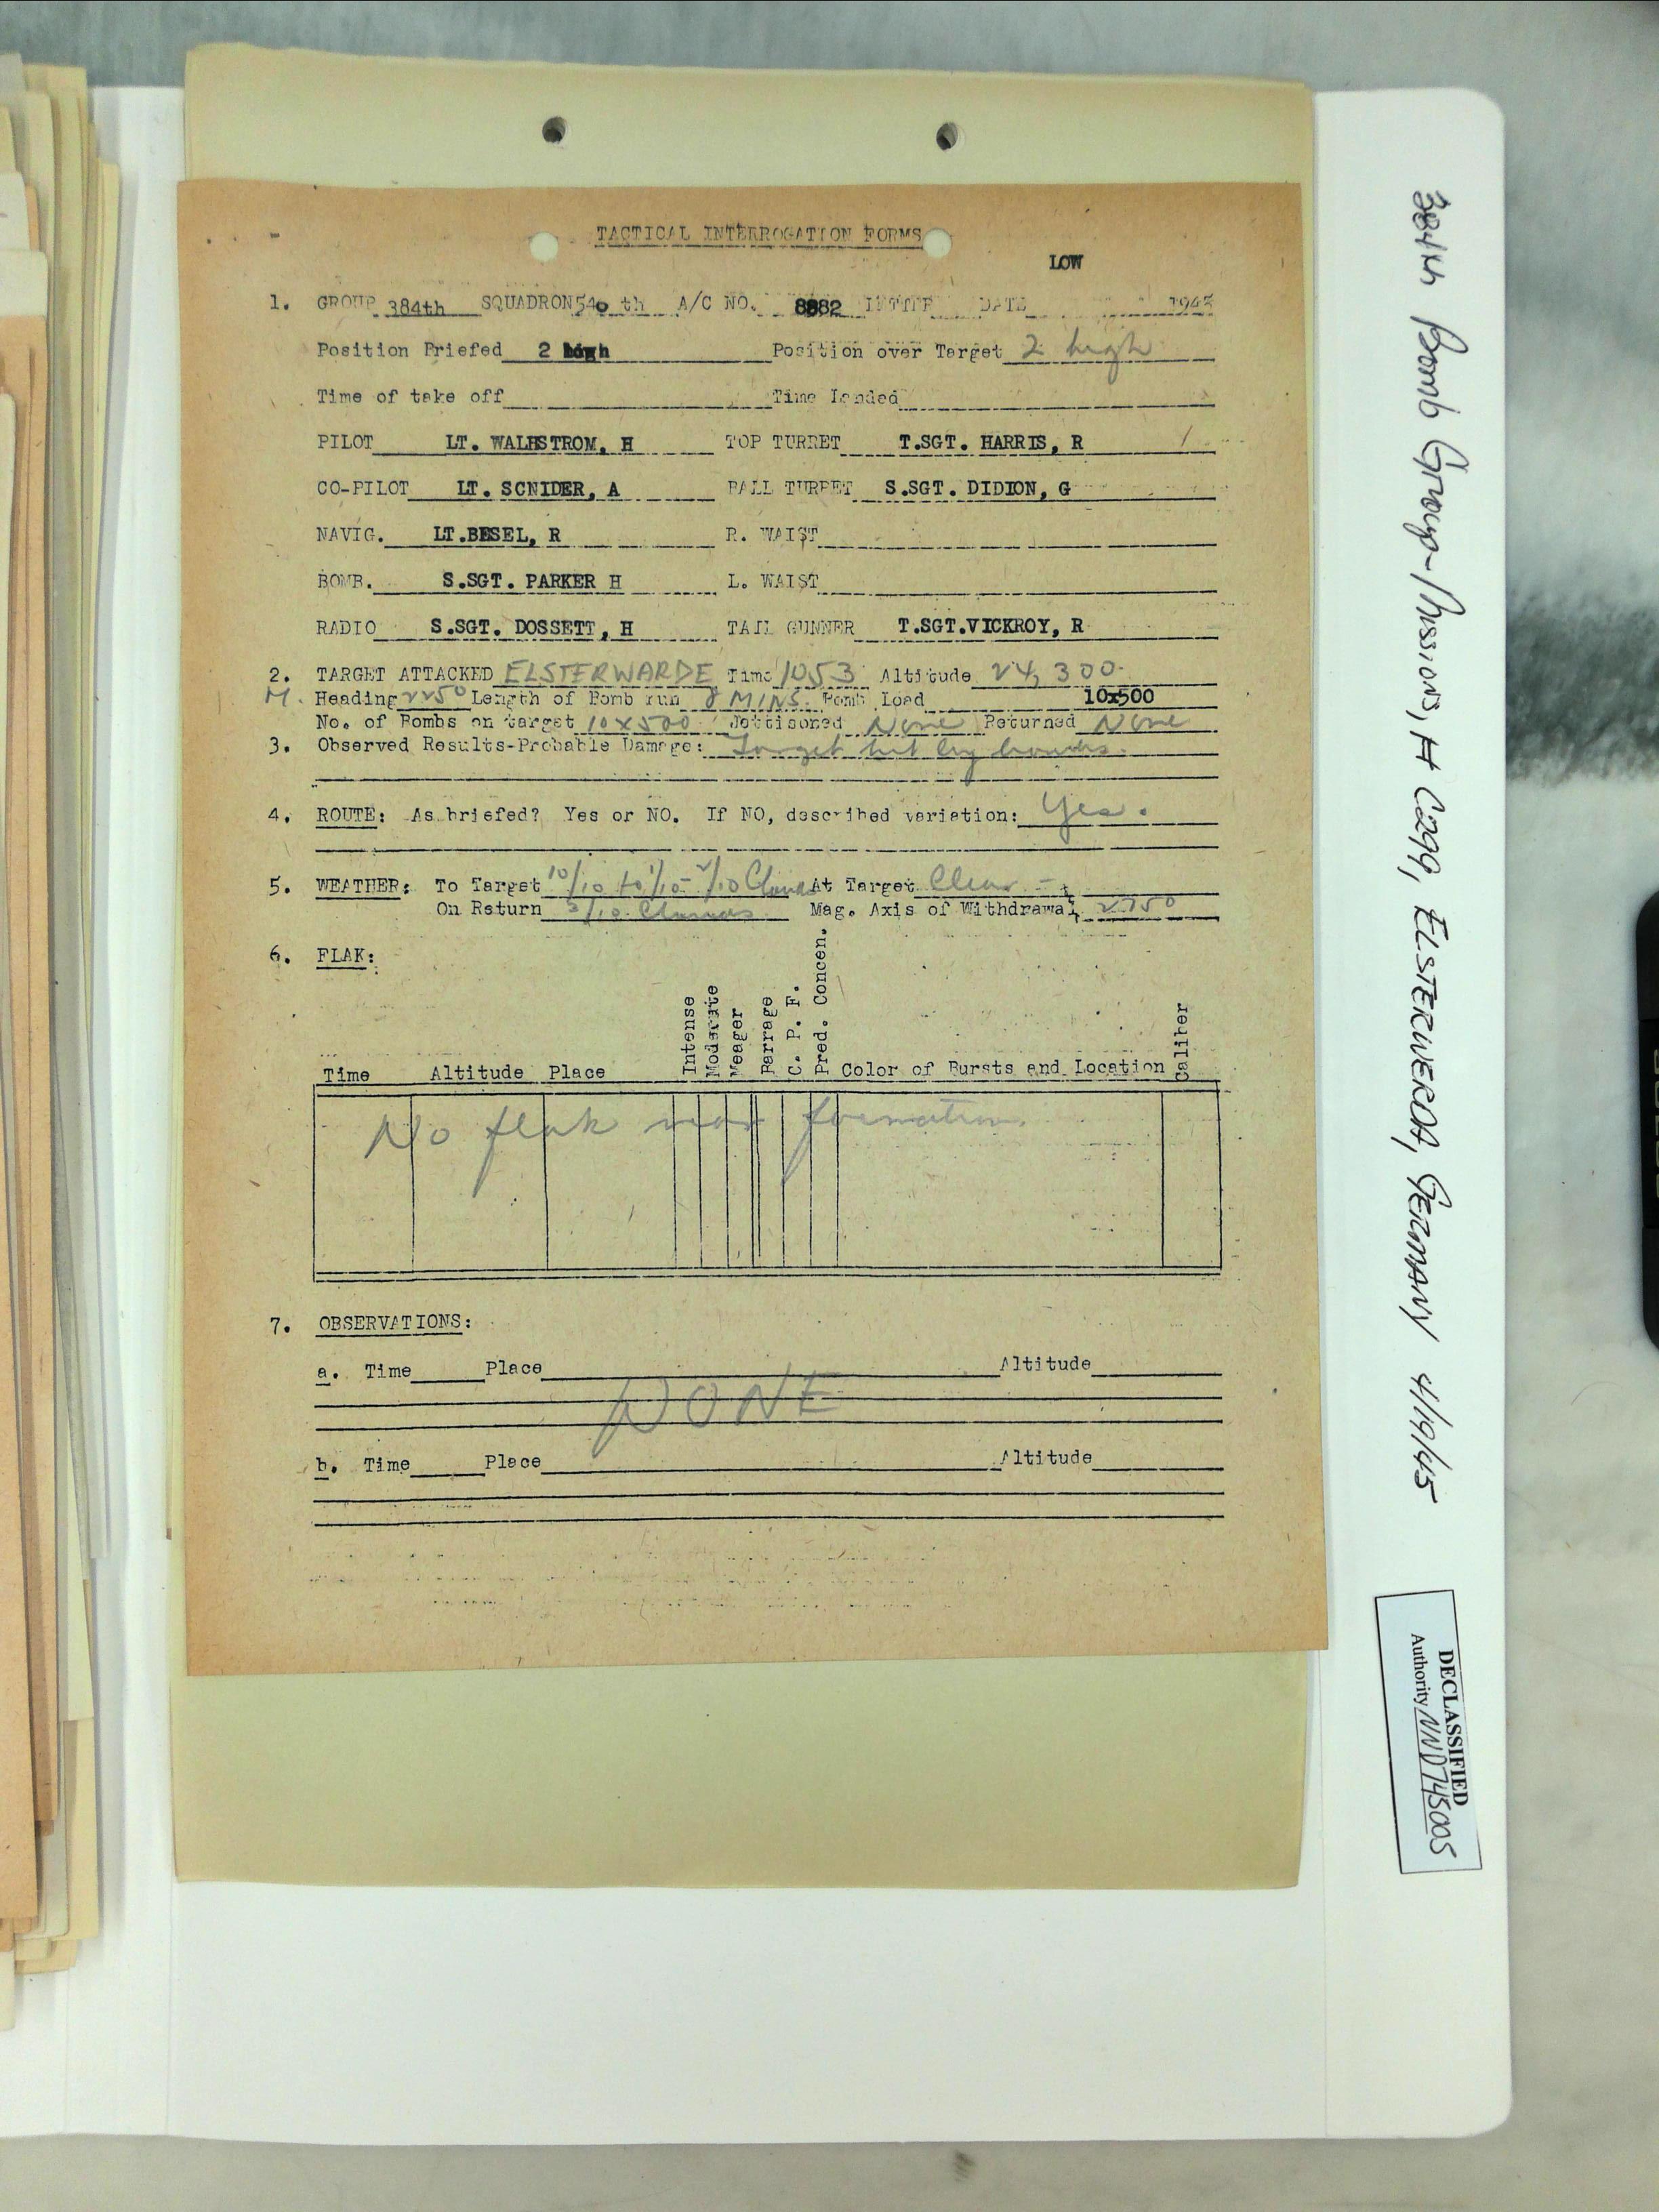 TACTICAL INTERROGATION FORMS
LOW
1. GROUP 384th SQUADRON 540 th A/C NO. 8882 LETTER DATE 1945
Position Briefed 2 high Position over Target 2 high
Time of take off Time Landed
PILOT LT. WALHSTROM, H TOP TURRET T.SGT. HARRIS, R
CO-PILOT LT. SCNIDER, A BALL TURRET S.SGT. DIDION, G
NAVIG. LT.BESEL, R R. WAIST
BOMB. S.SGT. PARKER H L. WAIST
RADIO S.SGT. DOSSETT, H TAIL GUNNER T.SGT.VICKROY, R
2. TARGET ATTACKED ELSTERWARDE Time 1053 Altitude 24,300
M. Heading 225° Length of Bomb run 8 MINS. Bomb Load 10x500
No. of Bombs on target 10x500 Jettisoned None Returned None
3. Observed Results-Probable Damage: Target hit by bombs.
4. ROUTE: As briefed? Yes or NO. If NO, described variation: Yes.
5. WEATHER: To Target 10/10 to 1/10-2/10 Clouds At Target Clear
On Return 3/10 Clouds Mag. Axis of Withdrawal 275°
6. FLAK:
Time Altitude Place Intense Moderate Meager Barrage C. P. F. Pred. Concen. Color of Bursts and Location Caliber
No flak near formation.
7. OBSERVATIONS:
a. Time Place Altitude
NONE
b. Time Place Altitude
384th Bomb Group-Mission, # C299, ELSTERWERDA, GERMANY 4/19/45
DECLASSIFIED
Authority NND745005